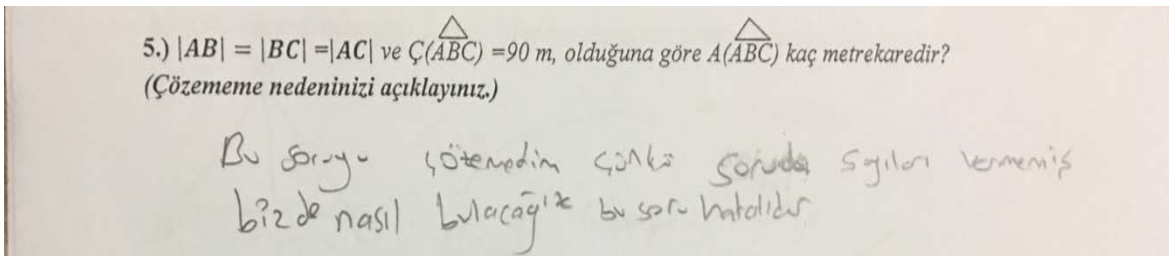 5.) |AB| = |BC| =|AC| ve Ç(ABC) =90 m, olduğuna göre A(ABC) kaç metrekaredir?
(Çözememe nedeninizi açıklayınız.)
Bu soruyu çözemedim çünkü soruda sayıları vermemiş
bizde nasıl bulacağız bu soru hatalıdır